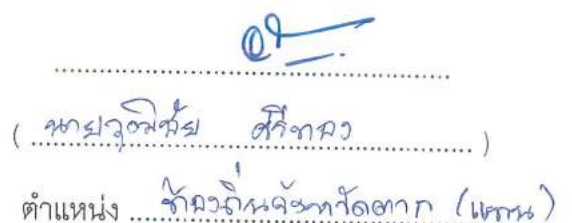 ( นายวุฒิชัย ศรีทอง )
ตำแหน่ง ท้องถิ่นจังหวัดตาก (แทน)